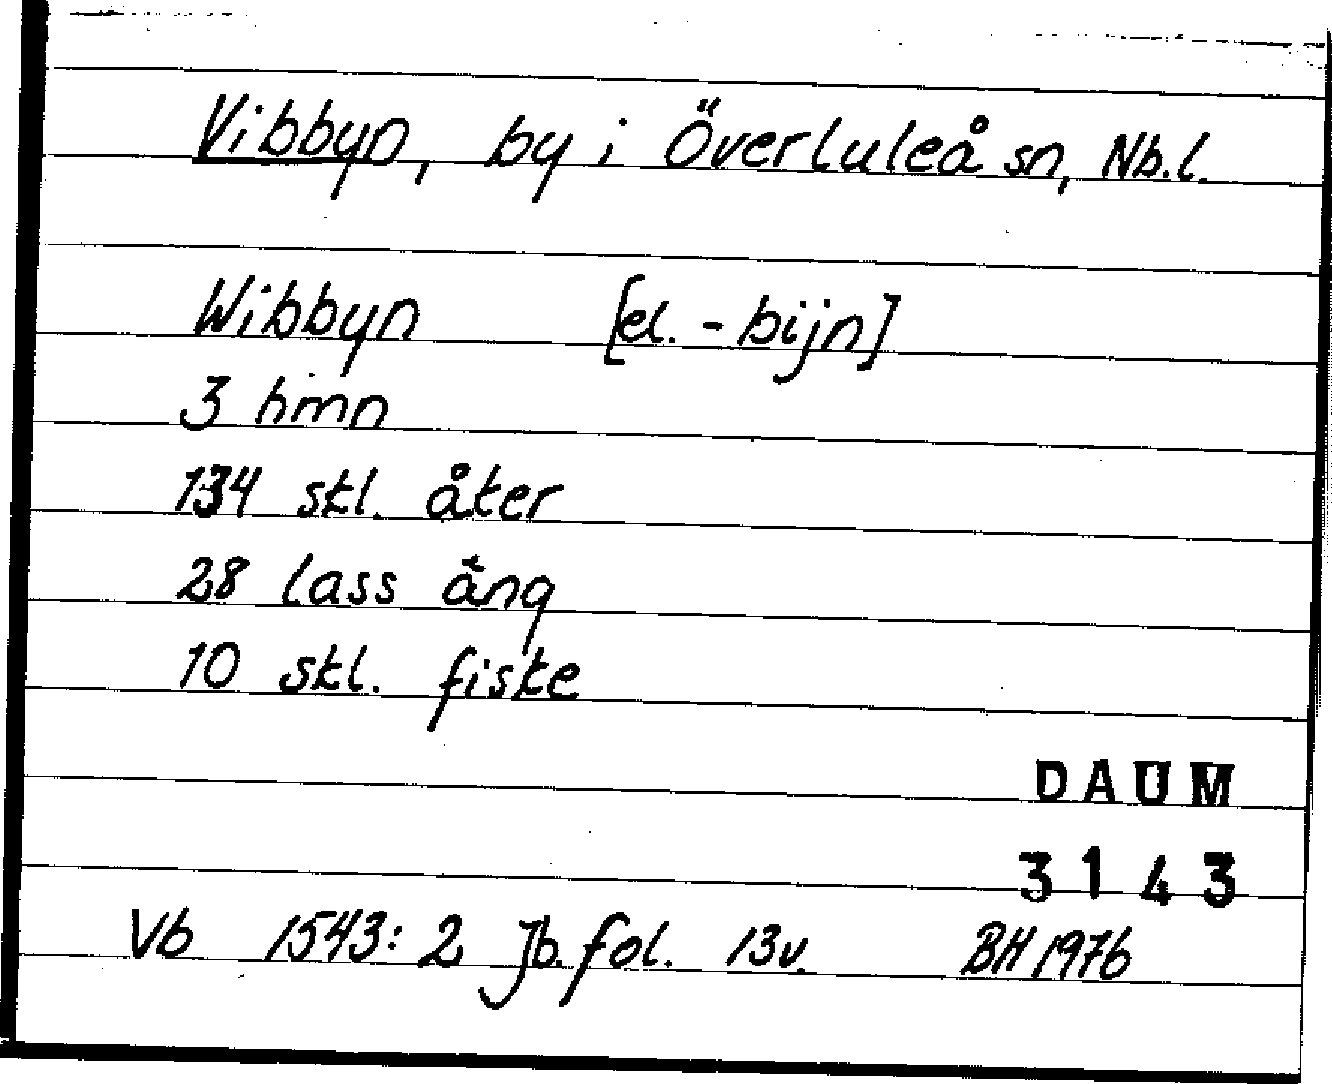 Vibbyn, by i Överluleå sn, Nb.l.
Wibbyn [el. -bijn]
3 hmn
134 skl. åker
28 lass äng
10 skl. fiske
DAUM
3143
Vb 1543:2 Jb. fol. 13v. BH 1976